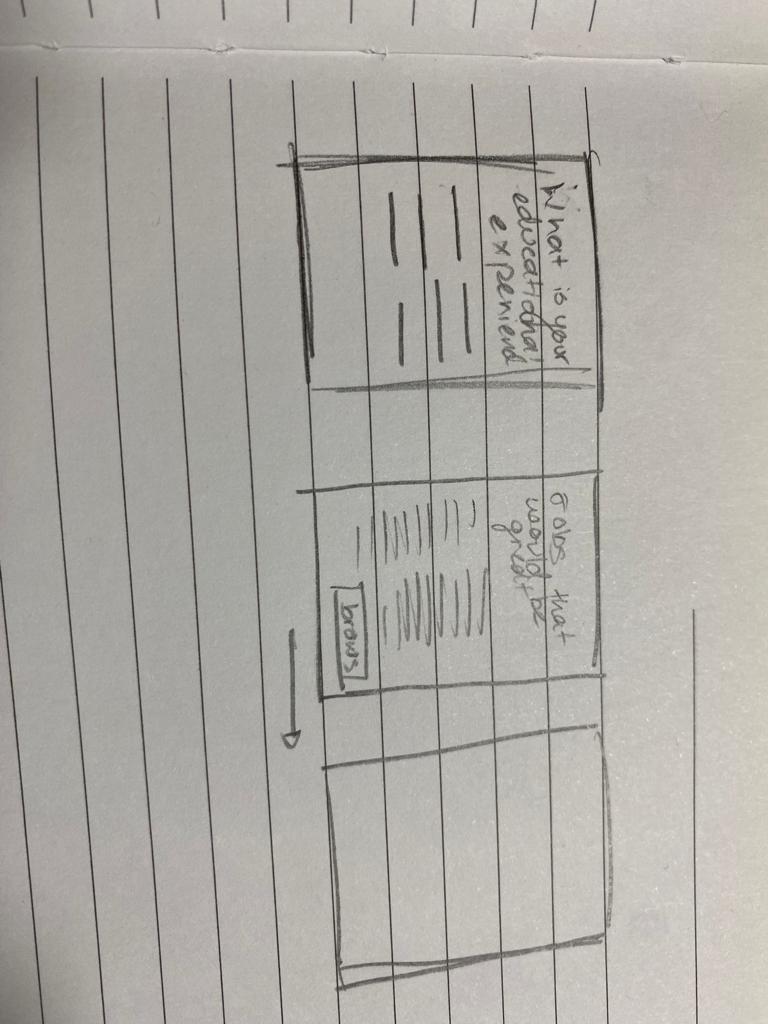 What is your
educational
experiend
Jobs that
would be
great
brows